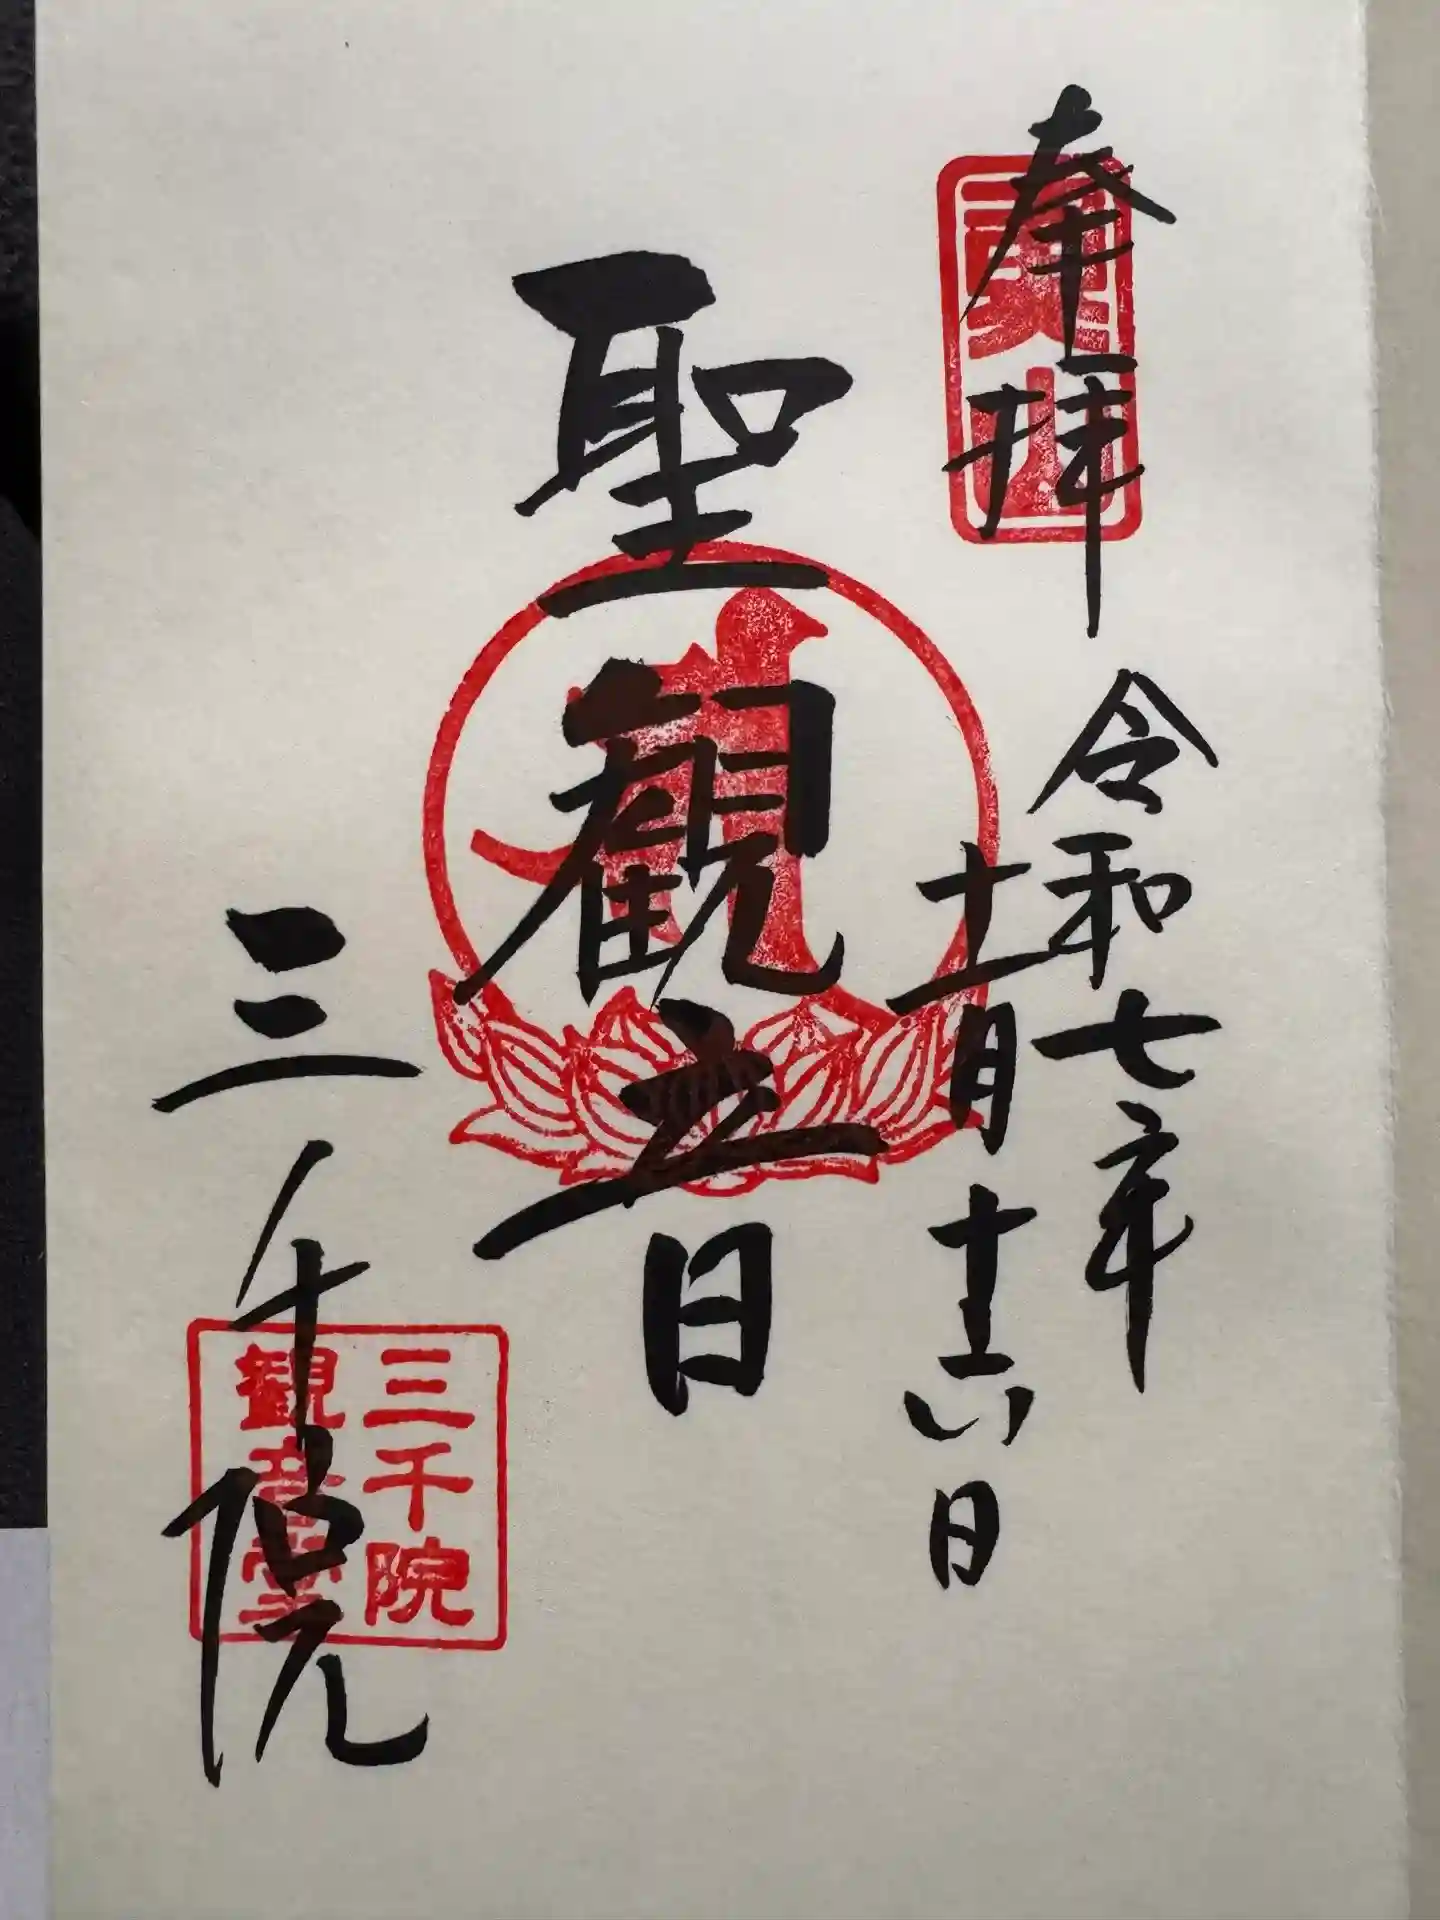 奉拝
魚山
令和七年
十一月十六日
聖観音
三千院
三千院
観音堂